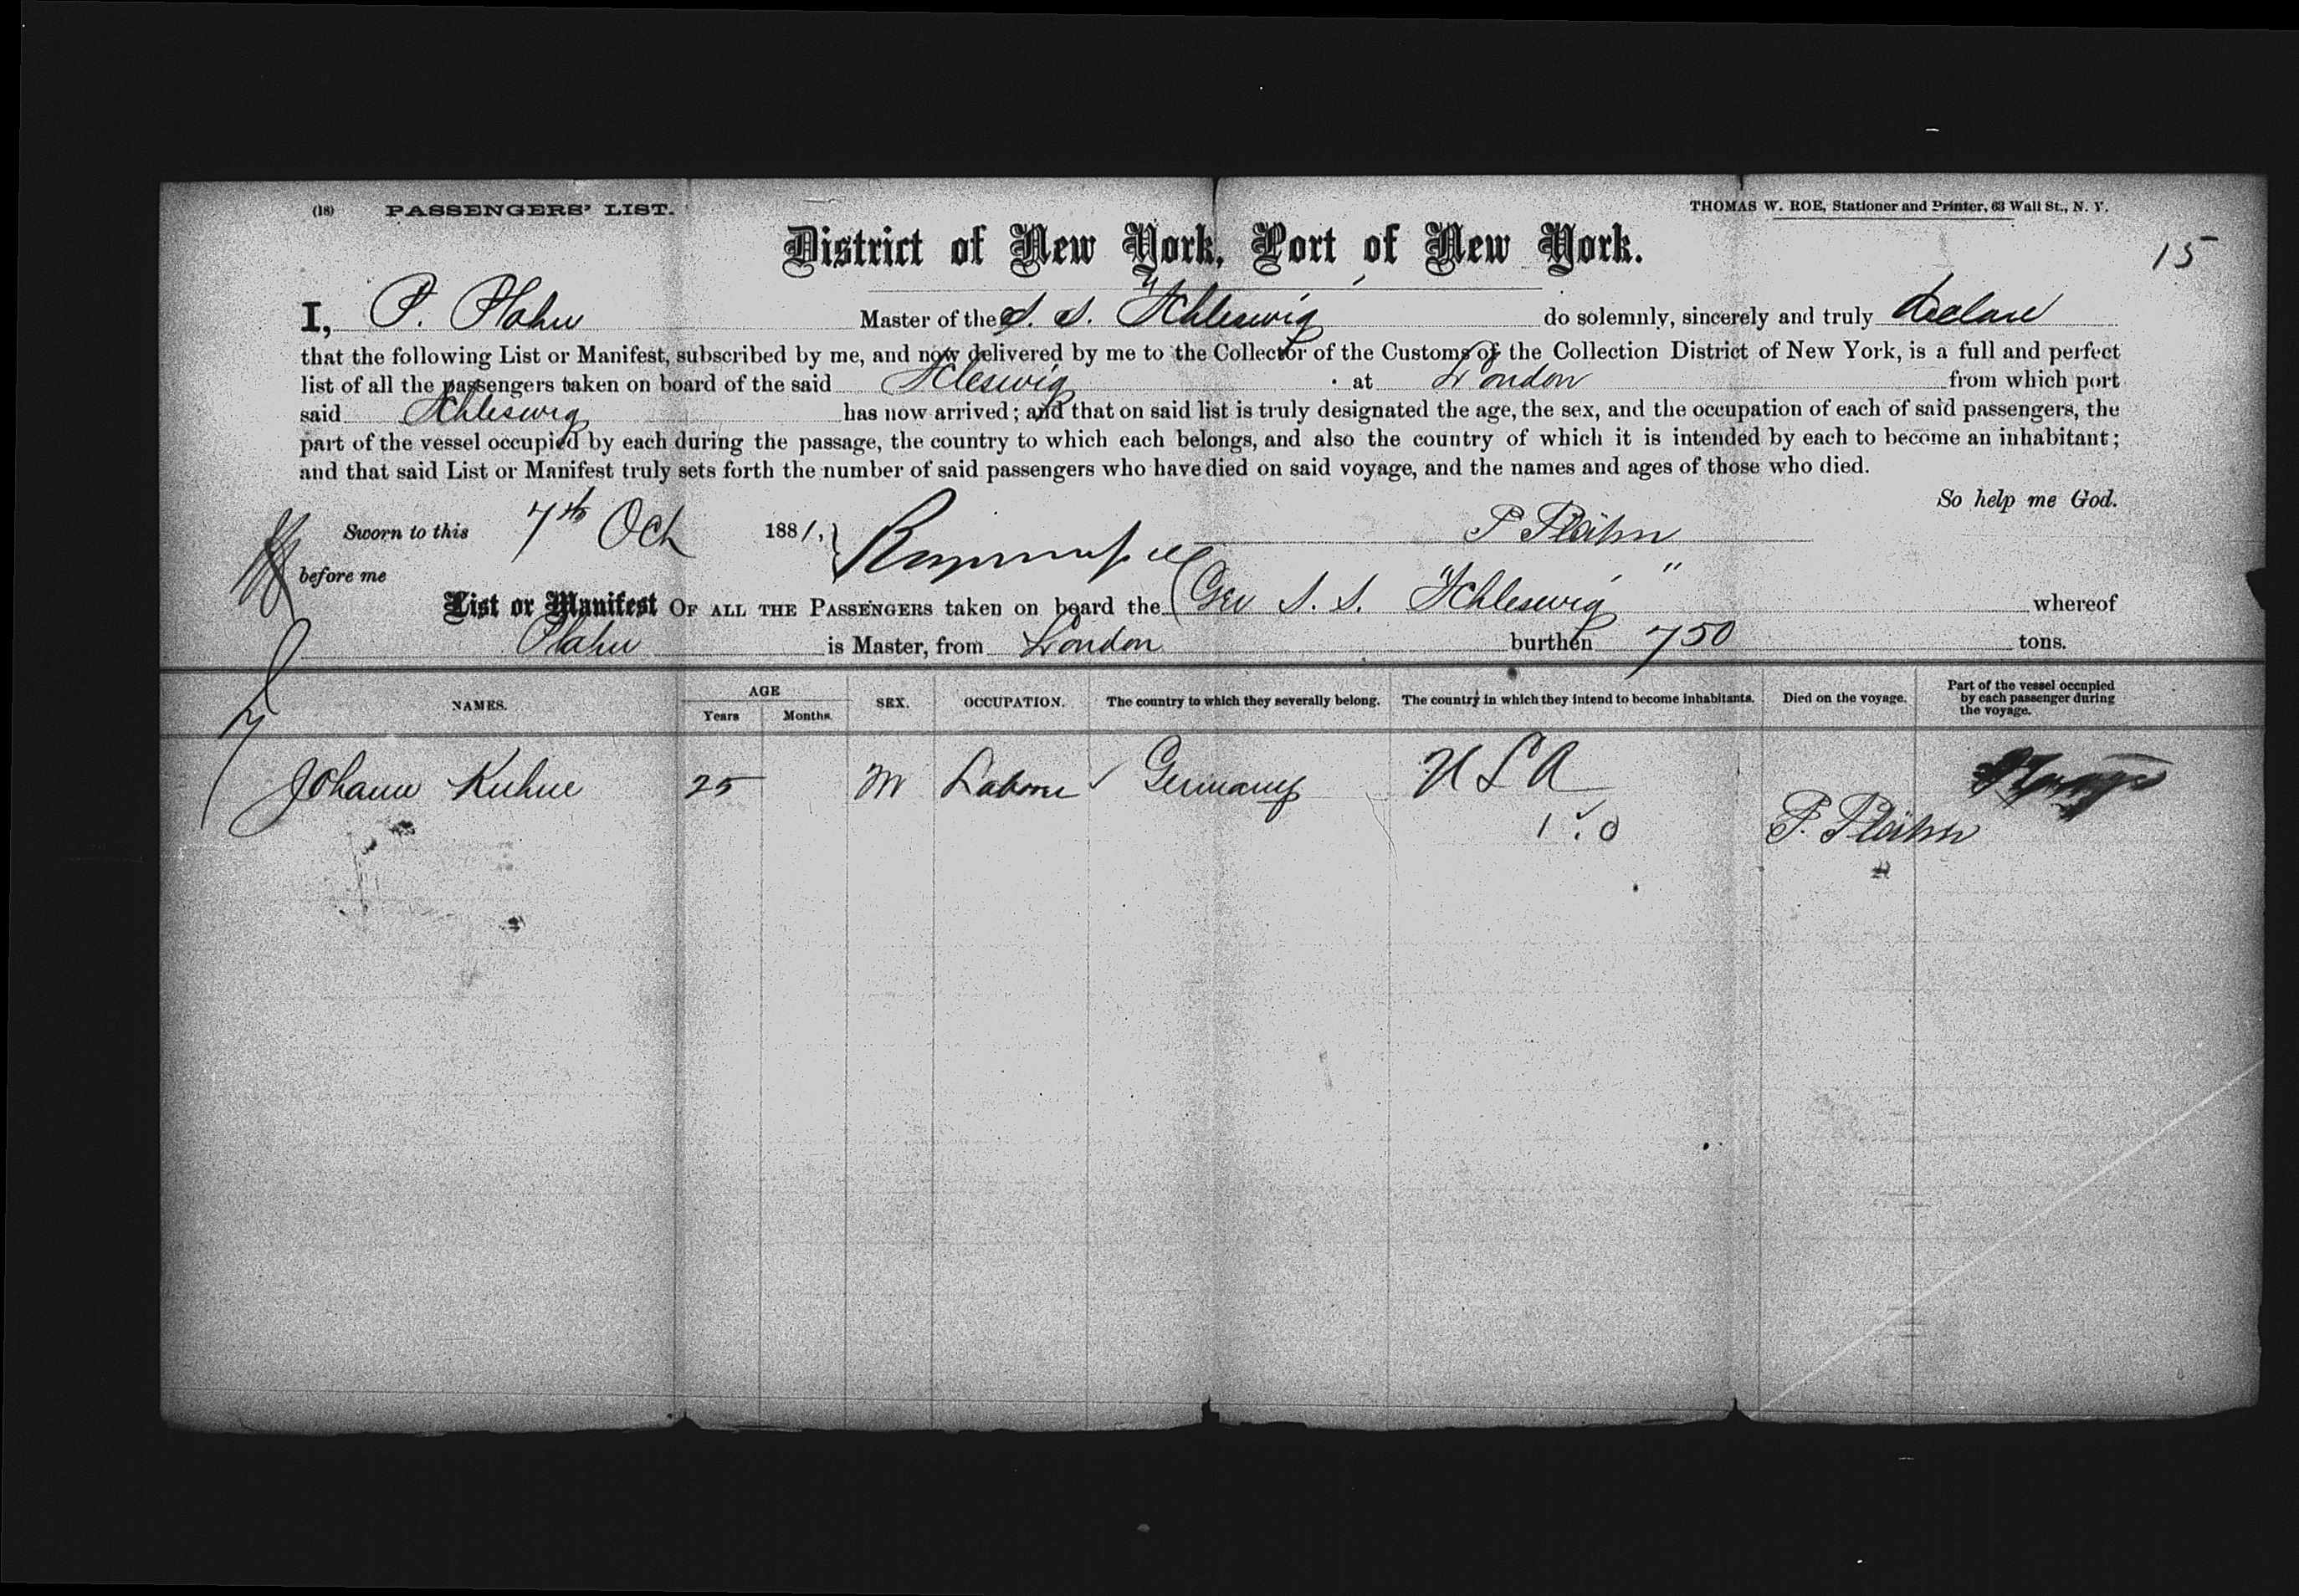 (18) PASSENGERS' LIST. THOMAS W. ROE, Stationer and Printer, 63 Wall St., N. Y.
District of New York, Port of New York.
15
I, P. Plahn Master of the S. S. "Schleswig do solemnly, sincerely and truly declare
that the following List or Manifest, subscribed by me, and now delivered by me to the Collector of the Customs of the Collection District of New York, is a full and perfect
list of all the passengers taken on board of the said Scleswig at London from which port
said Schleswig has now arrived; and that on said list is truly designated the age, the sex, and the occupation of each of said passengers, the
part of the vessel occupied by each during the passage, the country to which each belongs, and also the country of which it is intended by each to become an inhabitant;
and that said List or Manifest truly sets forth the number of said passengers who have died on said voyage, and the names and ages of those who died.
So help me God.
Sworn to this 7th Oct 1881, P Plähn
before me
List or Manifest OF ALL THE PASSENGERS taken on board the (Ger S. S. "Schleswig" whereof
Plahn is Master, from London burthen 750 tons.
NAMES. AGE Years Months. SEX. OCCUPATION. The country to which they severally belong. The country in which they intend to become inhabitants. Died on the voyage. Part of the vessel occupied by each passenger during the voyage.
Johann Kuhne 25 M Labour Germany U S A
1 . 0 P. Plähn